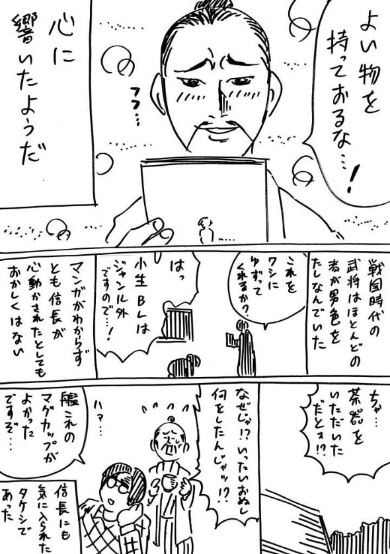 よい物を
持っておるな…!
フフ…
心に
響いたようだ
戦国時代の
武将はほとんどの
者が男色を
たしなんでいた
これを
ワシに
ゆずって
くれるか?
はっ
小生BLは
ジャンル外
ですので…!
マンガがわからず
とも信長が
心動かされたとしても
おかしくはない
ちゃ…
茶器を
いただいた
だとォ!?
なぜじゃ!?いったいおぬし
何をしたんじゃッ!?
ハァ…
艦これの
マグカップが
よかった
ですぞ…
信長にも
気に入られた
タケシで
あった